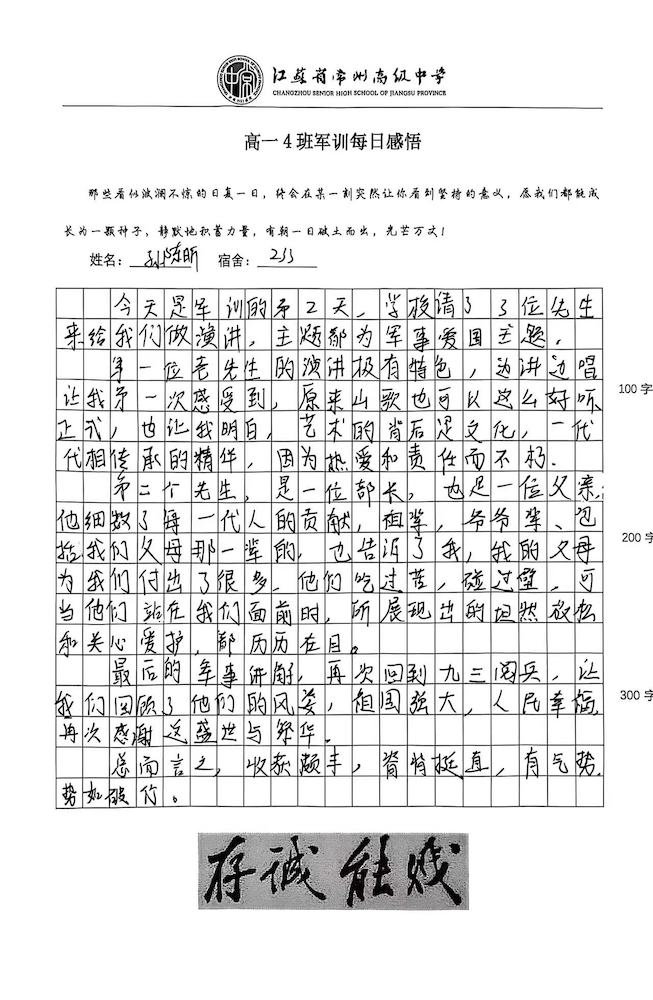 江苏省常州高级中学
CHANGZHOU SENIOR HIGH SCHOOL OF JIANGSU PROVINCE
高一4班军训每日感悟
那些看似波澜不惊的日复一日，终会在某一刻突然让你看到坚持的意义，愿我们都能成
长为一颗种子，静默地积蓄力量，有朝一日破土而出，光芒万丈！
姓名：孙陈昕 宿舍：233
今天是军训的第2天，学校请了3位先生
来给我们做演讲，主题都为军事爱国主题。
第一位老先生的演讲极有特色，边讲边唱
让我第一次感受到，原来山歌也可以这么好听
100字
正式，也让我明白，艺术的背后是文化，一代
代相传承的精华，因为热爱和责任而不朽。
第二个先生，是一位部长，也是一位父亲，
他细数了每一代人的贡献，祖辈，爷爷辈、包
括我们父母那一辈的，也告诉了我，我的父母
200字
为我们付出了很多，他们吃过苦，碰过壁，可
当他们站在我们面前时，所展现出的坦然放松
和关心爱护，都历历在目。
最后的军事讲解，再次回到九三阅兵，让
我们回顾了他们的风姿，祖国强大，人民幸福，
300字
再次感谢这盛世与繁华。
总而言之，收获颇丰，脊背挺直，有气势，
势如破竹。
存诚 能贱